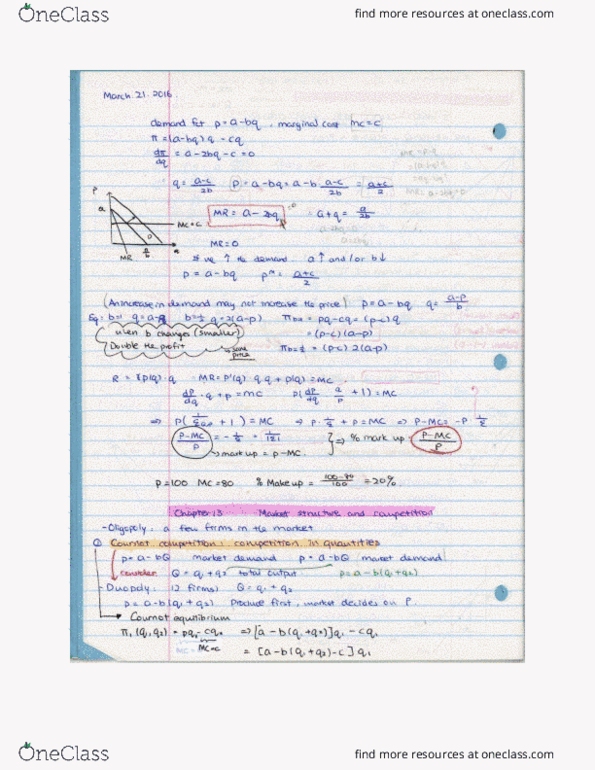 OneClass
find more resources at oneclass.com
March 21. 2016.
demand fct p = a-bq , marginal cost mc = c
π = (a-bq) q - cq
dπ/dq = a - 2bq - c = 0
q = a-c/2b p = a-bq = a-b · a-c/2b = a+c/2
P
a
MC = C
MR
a/b
MR = a - 2bq
MR = 0
if we ↑ the demand a ↑ and/or b ↓
p = a - bq pᵐ = a+c/2
(An increase in demand may not increase the price) p = a - bq q = a-p/b
Eg: b=1 b=½ q = 2(a-p) πb=1 = pq - cq = (p-c) q
when b changes (smaller) = (p-c)(a-p)
Double the profit same price πb=½ = (p-c) 2(a-p)
MR = p'(q) · q + p(q) = MC
dp/dq · q + p = MC
⇒ p · 1/ε + p = MC ⇒ P - MC = -P · 1/ε
P-MC/P = - 1/ε = 1/|ε| ⇒ % mark up = P-MC/P
mark up = P - MC
P = 100 MC = 80 % Make up = 100-80/100 = 20%
Chapter 13 Market structure and competition
- Oligopoly : a few firms in the market
① Cournot competition : competition in quantities
p = a - bQ market demand p = a - bQ market demand
consider Q = q₁ + q₂ total output p = a - b(q₁ + q₂)
- Duopoly : (2 firms) Q = q₁ + q₂
p = a - b(q₁ + q₂) Produce first, market decides on P.
Cournot equilibrium
π₁ (q₁, q₂) = pq₁ - cq₁ ⇒ [a - b(q₁ + q₂)] q₁ - cq₁
MC = c = [a - b(q₁ + q₂) - c] q₁
OneClass
find more resources at oneclass.com